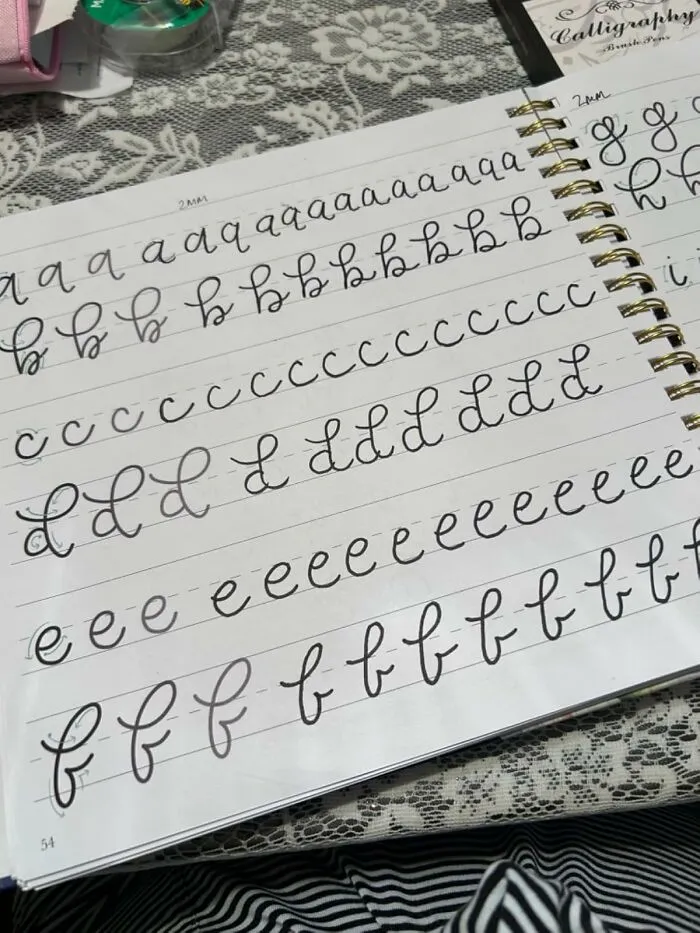 Calligraphy
Brush Pens
2MM
a a a a a a a a a a a a a a a a
b b b b b b b b b b b
c c c c c c c c c c c c c c c c
d d d d d d d d d d
e e e e e e e e e e e e e e e
f f f f f f f f f f
54
2MM
g g
h h
i